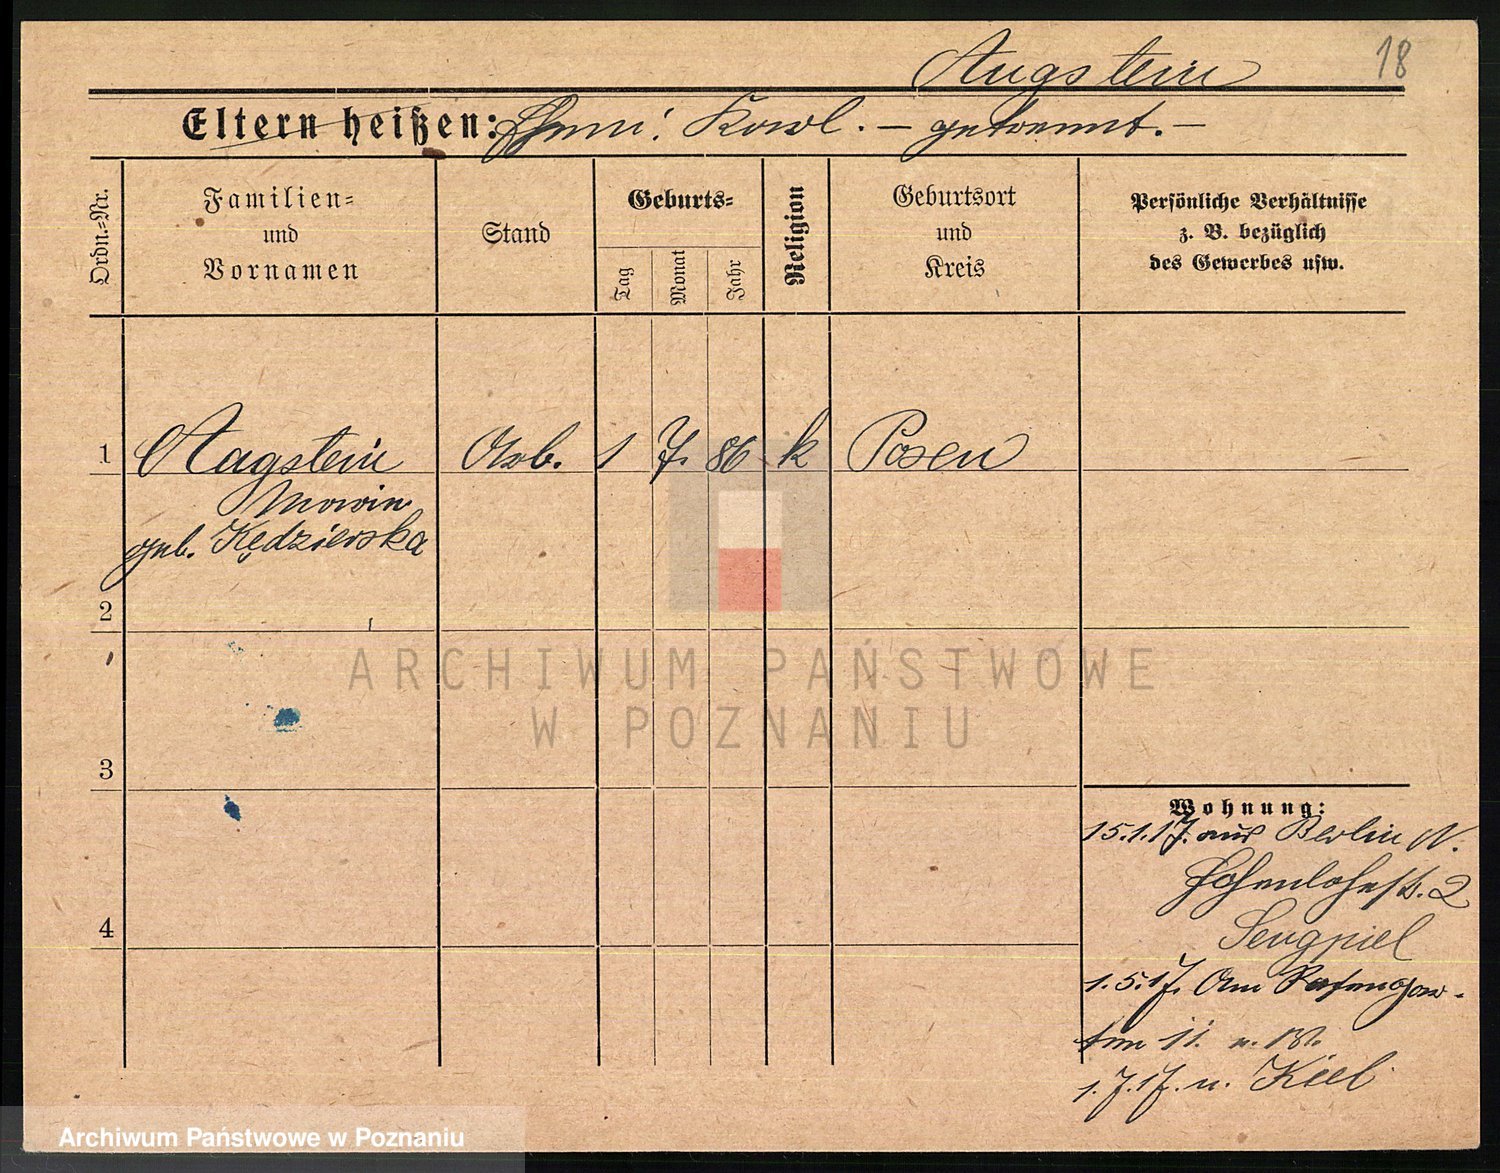 Augstein
18
Eltern heißen: Ehem: Karl. – getrennt. –
Ordn.-Nr.
Familien-
und
Vornamen
Stand
Geburts-
Tag
Monat
Jahr
Religion
Geburtsort
und
Kreis
Persönliche Verhältnisse
z. B. bezüglich
des Gewerbes usw.
1 Augstein Arb. 1 7. 86 k Posen
geb. Kędzierska
2
3
Wohnung:
15.1.17. aus Berlin N.
Hohenlohestr. 2
Sengpiel
4
1.5.17. Am
11.
1.7.17. n. Kiel
ARCHIWUM PAŃSTWOWE
W POZNANIU
Archiwum Państwowe w Poznaniu